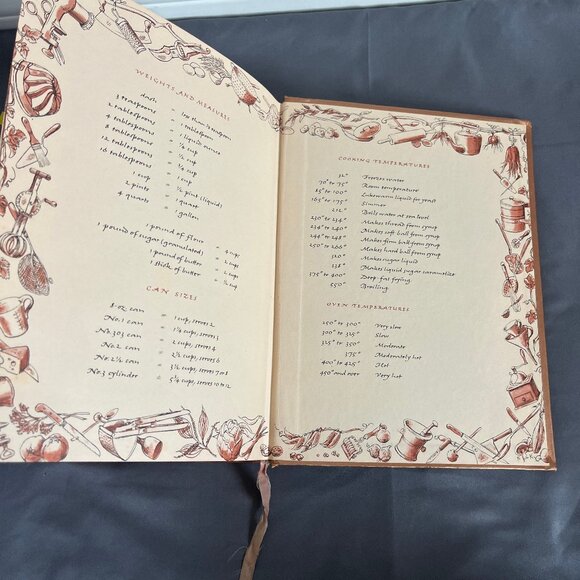 WEIGHTS AND MEASURES
dash = less than ⅛ teaspoon
3 teaspoons = 1 tablespoon
2 tablespoons = 1 liquid ounce
4 tablespoons = ¼ cup
8 tablespoons = ½ cup
12 tablespoons = ¾ cup
16 tablespoons = 1 cup
1 cup = ½ pint (liquid)
2 pints = 1 quart
4 quarts = 1 gallon
1 pound of flour = 4 cups
1 pound of sugar (granulated) = 2 cups
1 pound of butter = 2 cups
1 stick of butter = ½ cup
CAN SIZES
8-oz can = 1 cup, serves 2
No. 1 can = 1¼ cups, serves
No. 303 can = 2 cups, serves 4
No. 2 can = 2½ cups, serves
No. 2½ can = 3½ cups, serves 7 or 8
No. 3 cylinder = 5¾ cups, serves 10 to 12
COOKING TEMPERATURES
32° Freezes water
70° to 75° Room temperature
85° to 100° Lukewarm liquid for yeast
165° to 175° Simmer
212° Boils water at sea level
230° to 234° Makes thread from syrup
234° to 240° Makes soft ball from syrup
244° to 248° Makes firm ball from syrup
250° to 266° Makes hard ball from syrup
320° Makes sugar liquid
338° Makes liquid sugar caramelize
375° to 400° Deep-fat frying
550° Broiling
OVEN TEMPERATURES
250° to 300° Very slow
300° to 325° Slow
325° to 350° Moderate
375° Moderately hot
400° to 425° Hot
450° and over Very hot